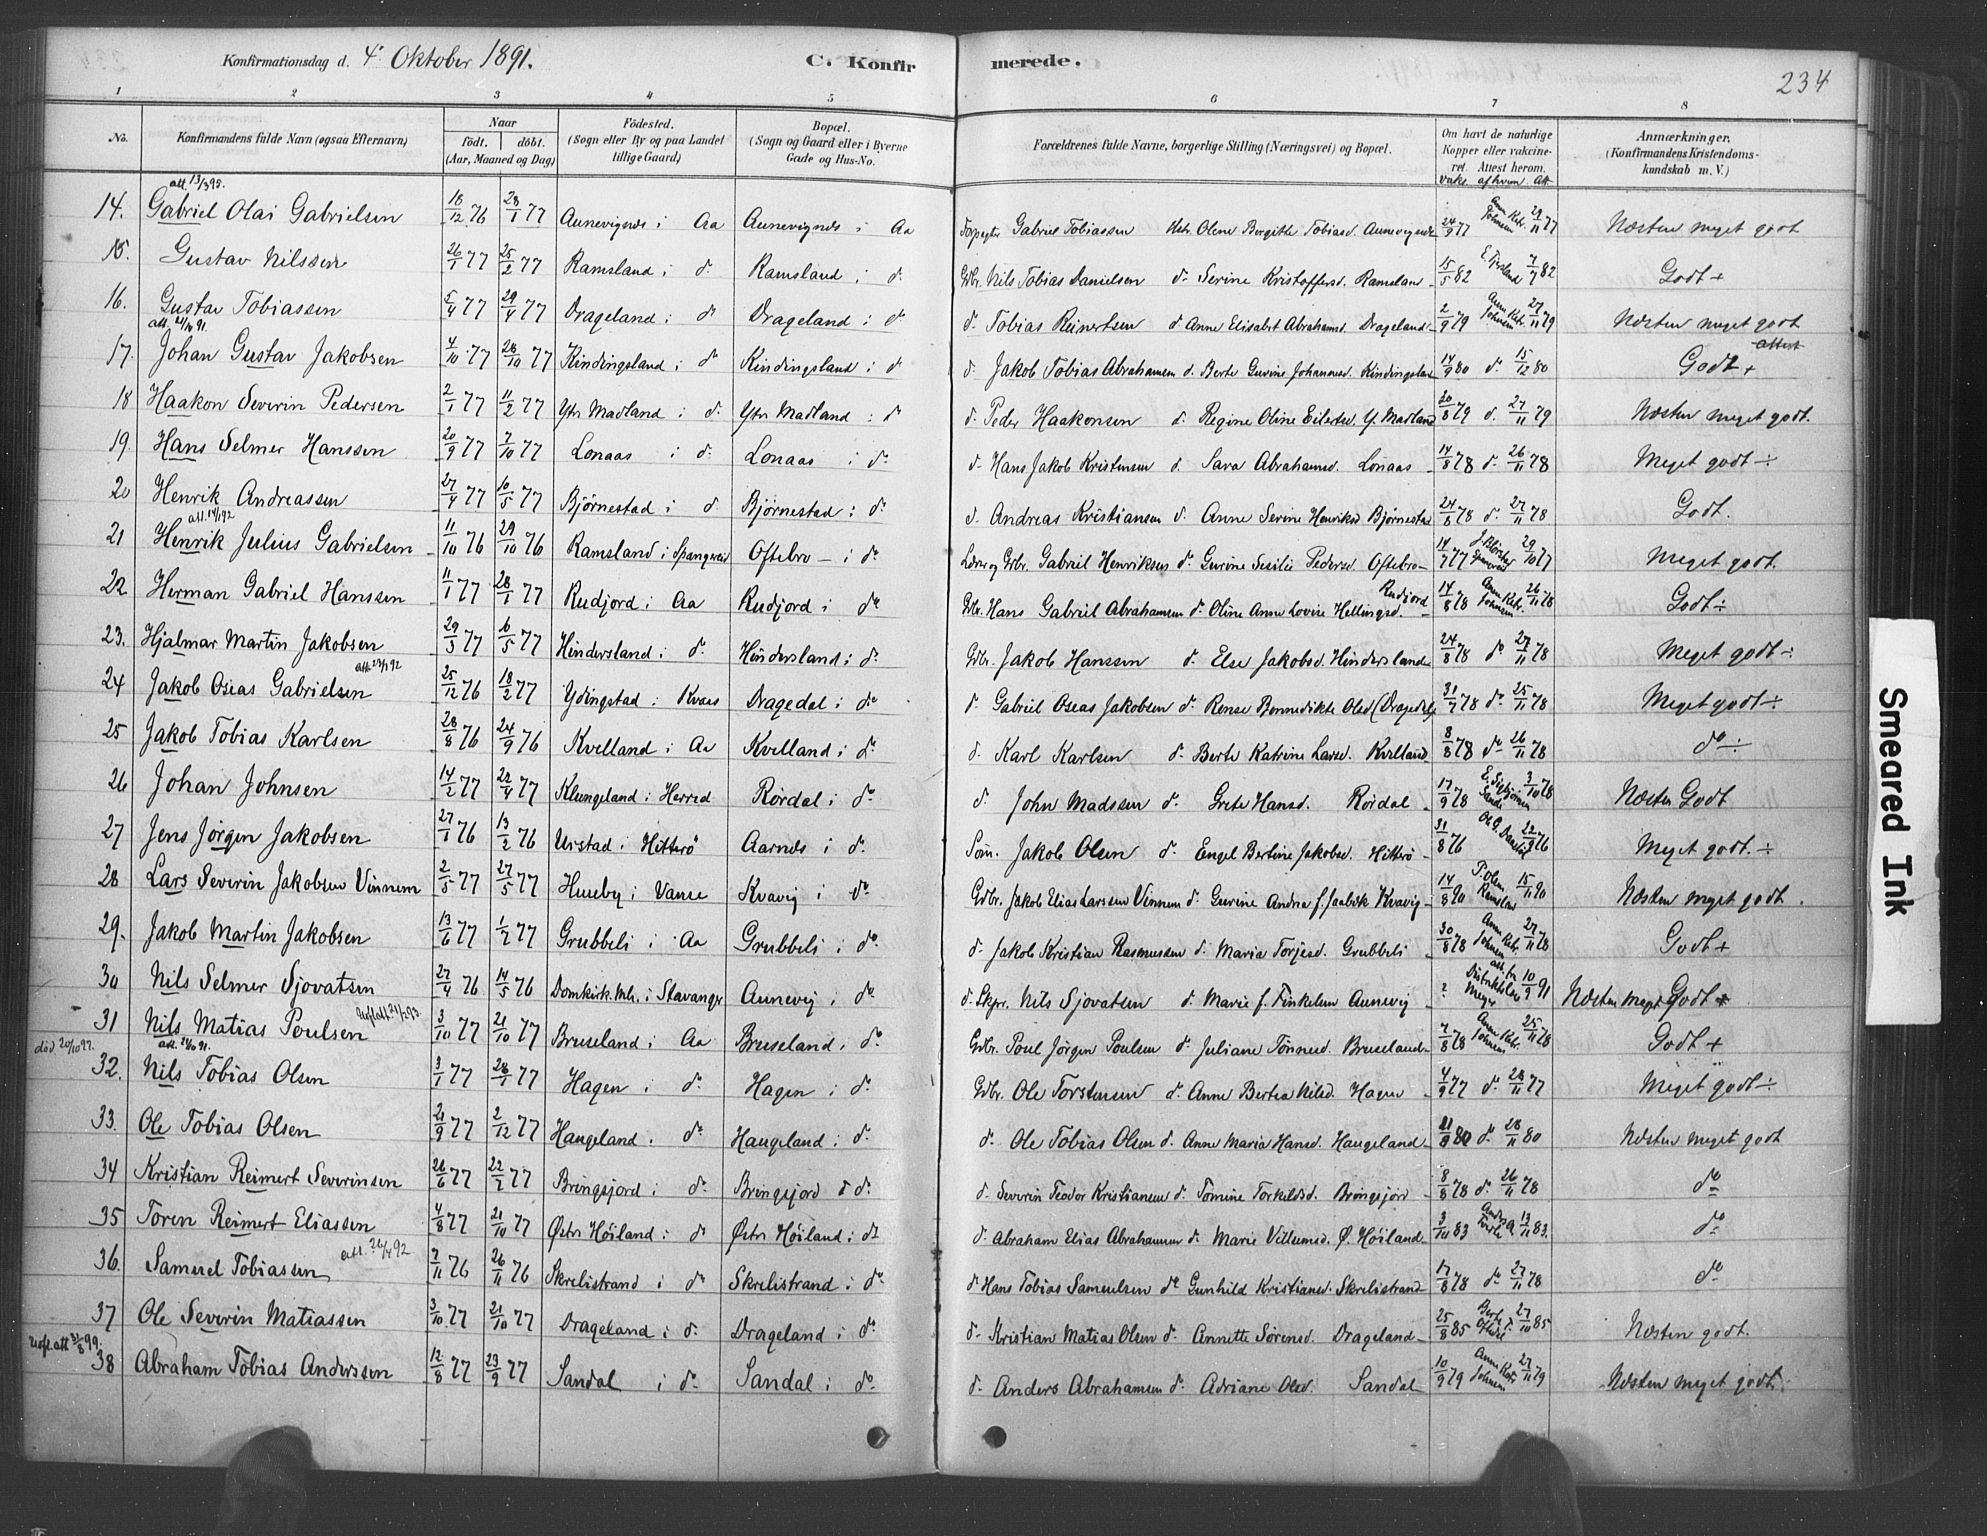 Konfirmationsdag d. 4' Oktober 1891. C. Konfirmerede. 234
1 2 3 4 5 6 7 8
No. Konfirmandens fulde Navn (ogsaa Efternavn) Naar födt. döbt. (Aar, Maaned og Dag) Födested. (Sogn eller By og paa Landet tillige Gaard) Bopæl. (Sogn og Gaard eller i Byerne Gade og Hus-No. Forældrenes fulde Navne, borgerlige Stilling (Næringsvei) og Bopæl. Om havt de naturlige Kopper eller vakcineret. Attest herom. Vaks. af hvem. Att. Anmærkninger, (Konfirmandens Kristendomskundskab m. V.)
14. Gabriel Olai Gabrielsen 18/12 76 28/1 77 Aunevignds i Aa Aunevignds i Aa Gabriel Tobiassen Olene Bergitte Tobiasd. Aunevignds 24/9 77 Ann Katr. Johnsen 29/11 77 Næsten meget godt
15. Gustav Nilssen 26/1 77 25/2 77 Ramsland i d. Ramsland i d. Gdbr. Nils Tobias Danielsen d. Serine Kristoffersd. Ramsland 15/5 82 7/7 82 Godt +
16. Gustav Tobiassen 5/4 77 29/4 77 Drageland i d. Drageland i d. d. Tobias Reinertsen d. Anne Elisabet Abrahamsd. Drageland 2/9 79 Ann Katr. Johnsen 27/11 79 Næsten meget godt
att. 21/10 91.
17. Johan Gustav Jakobsen 4/10 77 28/10 77 Kindingsland i d. Kindingsland i d. d. Jakob Tobias Abrahamsen d. Berte Gurine Johannesd. Kindingsland 14/9 80 d. 15/12 80 Godt + attest
18 Haakon Severin Pedersen 2/1 77 11/2 77 Ytr. Madland i d. Ytr. Madland i d. d. Peder Haakonsen d. Regine Oline Eilertsd. Y. Madland 20/8 79 d. 27/11 79 Næsten meget godt.
19. Hans Selmer Hanssen 20/9 77 7/10 77 Lonaas i d. Lonaas i d. d. Hans Jakob Kristensen d. Sara Abrahamsd. Lonaas 14/8 78 d. 26/11 78 Meget godt ÷
20 Henrik Andreassen 27/4 77 10/5 77 Bjørnestad i d. Bjørnestad i d. d. Andreas Kristiansen d. Anne Serine Henriksd Bjørnestad 24/8 78 d. 27/11 78 Godt.
21 Henrik Julius Gabrielsen 11/10 76 29/10 76 Ramsland i Spangereid Oftebro i d. Gabriel Henriksen d. Gurine Sesilie Pedersd. Oftebro 14/7 77 29/10 77 Meget godt.
22 Herman Gabriel Hanssen 11/1 77 28/1 77 Rudjord i Aa Rudjord i d. Gdbr. Hans Gabriel Abrahamsen d. Oline Anne Lovise Hellingsd. Rudjord 14/8 78 Ann Katr. Johnsen 26/11 78 Godt ÷
23. Hjalmar Martin Jakobsen 29/3 77 6/5 77 Hindersland i d. Hindersland i d. Gdbr. Jakob Hanssen d. Else Jakobsd. Hindersland 24/8 78 d. 27/11 78 Meget godt ÷
24 Jakob Oseas Gabrielsen 25/12 76 18/2 77 Ydingstad i Kvaas Dragedal i d. d. Gabriel Oseas Jakobsen d. Rense Bennedikte Olsd (Dragedal) 31/7 78 d. 25/11 78 Meget godt ÷
25 Jakob Tobias Karlsen 28/8 76 24/9 76 Kvelland i Aa Kvelland i d. d. Karl Karlsen d. Berte Katrine Larsd. Kvelland 8/8 78 d. 26/11 78 do ÷
26 Johan Johnsen 14/2 77 22/4 77 Klungeland i Herred Rørdal i d. d. John Madssen d. Grete Hansd. Rørdal 17/9 78 3/10 78 Næsten Godt
27 Jens Jørgen Jakobsen 27/1 76 13/2 76 Urstad i Hitterö Aarnes i d. Jakob Olsen d. Engel Bertine Jakobsd. Hitterø 31/8 76 Meget godt. ÷
28 Lars Severin Jakobsen Vinnem 2/5 77 27/5 77 Huseby i Vanse Kvavig i d. Gdbr. Jakob Elias Larssen Vinnem d. Gurine Andrea f. Jaabek Kvavig 14/8 90 15/11 90 Næsten meget godt.
29. Jakob Martin Jakobsen 13/6 77 1/7 77 Grubbeli i Aa Grubbeli i d. d. Jakob Kristian Rasmussen d. Maria Torjesd. Grubbeli 30/8 78 Ann Katr. Johnsen 27/11 78 Godt +
30 Nils Selmer Sjovatsen 27/4 76 14/5 76 Domkirk. Mh. i Stavanger Aunevig i d. d. Skpr. Nils Sjovatsen d. Marie f. Finkelsen Aunevig ? 10/9 91 Næsten meget Godt
31 Nils Matias Poulsen 3/10 77 21/10 77 Bruseland i Aa Bruseland i d. Gdbr. Poul Jörgen Poulsen d. Juliane Tønnesd. Bruseland 7/8 78 Anne Katr. Johnsen 25/11 78 Godt +
att. 21/10 91.
32. Nils Tobias Olsen 3/1 77 28/1 77 Hagen i d. Hagen i d. Gdbr. Ole Torstensen d. Anne Bertea Nilsd. Hagen 4/9 77 d. 28/11 77 Meget godt ÷
33. Ole Tobias Olsen 21/9 77 2/12 77 Haugeland i d. Haugeland i d. d. Ole Tobias Olsen d. Anne Maria Hansd. Haugeland 21/8 80 d. 28/11 80 Næsten meget godt
34 Kristian Reimert Severinsen 26/6 77 22/7 77 Bringsjord i d. Bringsjord i d. d. Severin Teodor Kristiansen d. Tomine Torkildsd. Bringsjord 8/8 78 d. 26/11 78 do
35 Toren Reimert Eliassen 4/8 77 21/10 77 Østr. Høiland i d. Østr. Høiland i d. d. Abraham Elias Abrahamsen d. Marie Villumsd. Ø. Høiland 3/10 83 83. do
36. Samuel Tobiassen 7/11 76 26/11 76 Skrelistrand i d. Skrelistrand i d. d. Hans Tobias Samuelsen d. Gunhild Kristiansd. Skrelistrand 17/8 78 d. 27/11 78 do
37 Ole Severin Matiassen 3/10 77 21/10 77 Drageland i d. Drageland i d. d. Kristian Matias Olsen d. Annette Sørensd. Drageland 25/8 85 27/10 85 Næsten godt.
38 Abraham Tobias Anderssen 12/8 77 23/9 77 Sandal i d. Sandal i d. d. Anders Abrahamsen d. Adriane Olsd. Sandal 10/9 79 Anne Katr. Johnsen 27/11 79 Næsten meget godt.
Smeared Ink